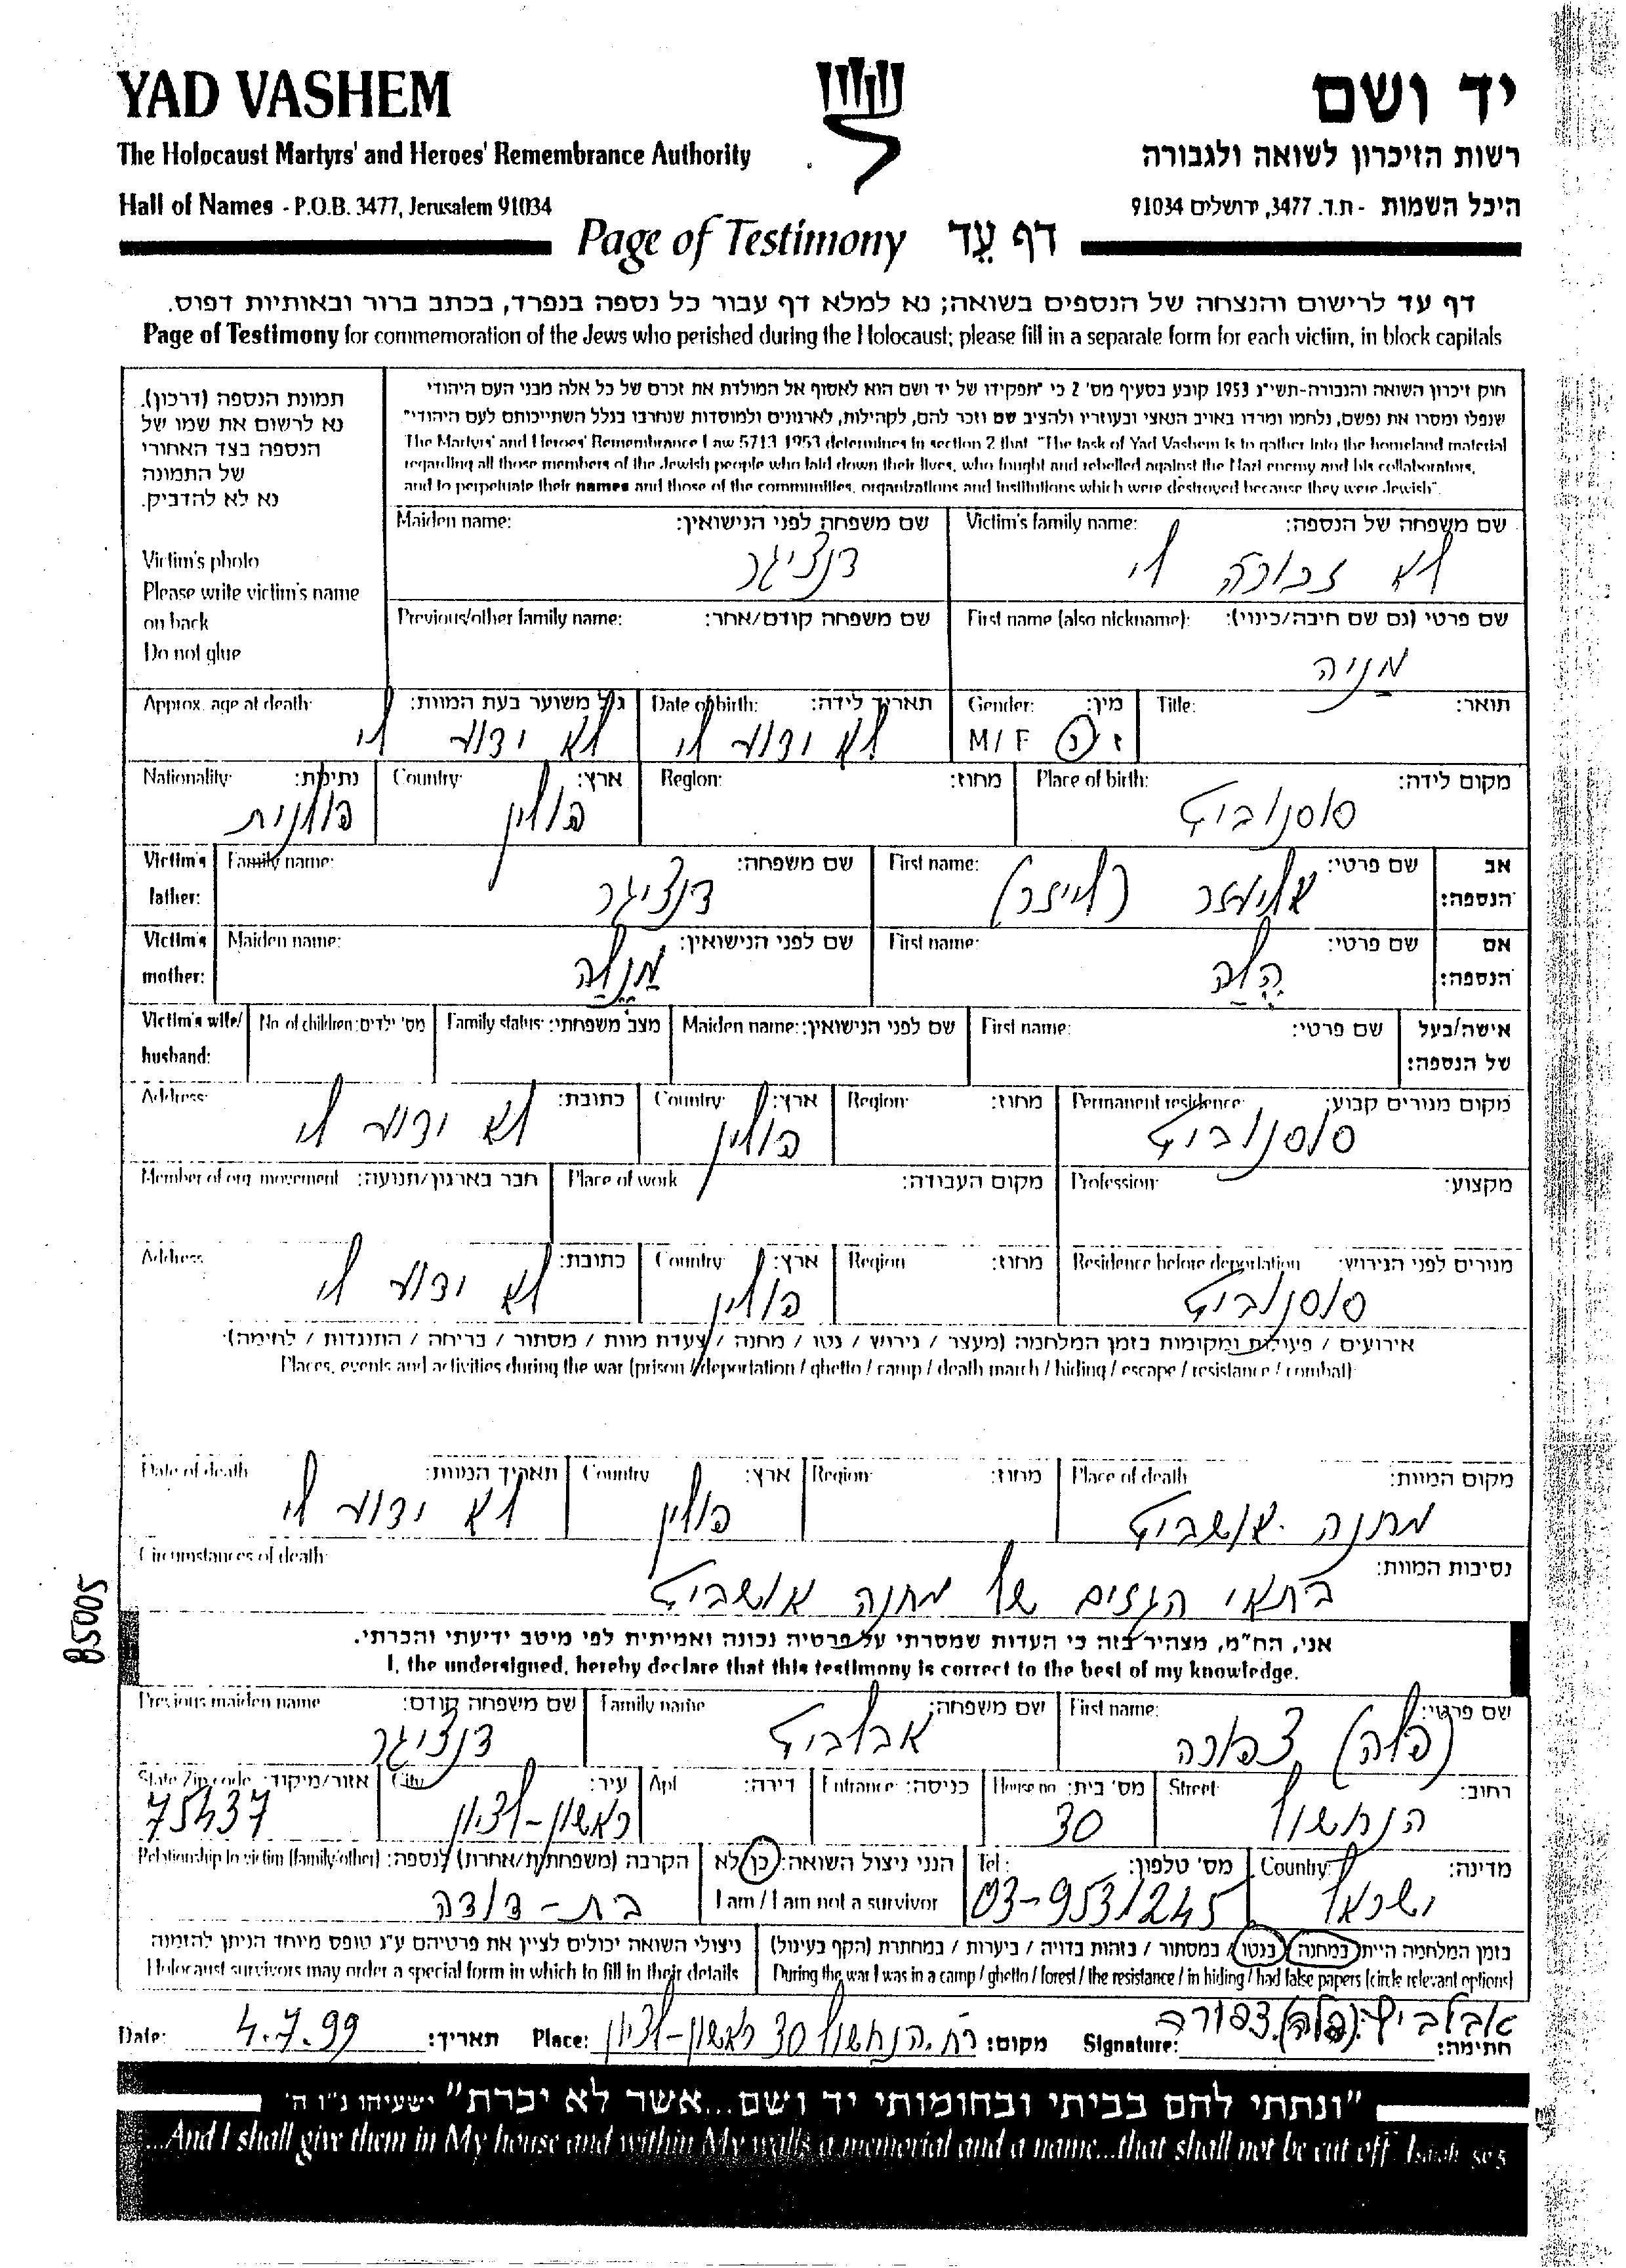 YAD VASHEM
יד ושם
The Holocaust Martyrs' and Heroes' Remembrance Authority
רשות הזיכרון לשואה ולגבורה
Hall of Names - P.O.B. 3477, Jerusalem 91034
היכל השמות - ת.ד. 3477, ירושלים 91034
Page of Testimony דף עֵד
דף עד לרישום והנצחה של הנספים בשואה; נא למלא דף עבור כל נספה בנפרד, בכתב ברור ובאותיות דפוס.
Page of Testimony for commemoration of the Jews who perished during the Holocaust; please fill in a separate form for each victim, in block capitals
תמונת הנספה (דרכון).
נא לרשום את שמו של
הנספה בצד האחורי
של התמונה
נא לא להדביק.
Victim's photo
Please write victim's name
on back
Do not glue
חוק זיכרון השואה והגבורה-תשי"ג 1953 קובע בסעיף מס' 2 כי "תפקידו של יד ושם הוא לאסוף אל המולדת את זכרם של כל אלה מבני העם היהודי
שנפלו ומסרו את נפשם, נלחמו ומרדו באויב הנאצי ובעוזריו ולהציב שם וזכר להם, לקהילות, לארגונים ולמוסדות שנחרבו בגלל השתייכותם לעם היהודי"
The Martyrs' and Heroes' Remembrance Law 5713 1953 determines in section 2 that "The task of Yad Vashem is to gather into the homeland material
regarding all those members of the Jewish people who laid down their lives, who fought and rebelled against the Nazi enemy and his collaborators,
and to perpetuate their names and those of the communities, organizations and institutions which were destroyed because they were Jewish".
Victim's family name: שם משפחה של הנספה:
לא זכורה לי
Maiden name: שם משפחה לפני הנישואין:
דנציגר
First name (also nickname): שם פרטי (גם שם חיבה/כינוי):
מניה
Previous/other family name: שם משפחה קודם/אחר:
Title: תואר:
Gender: מין:
M / F ז / נ
Date of birth: תאריך לידה:
לא ידוע לי
Approx. age at death: גיל משוער בעת המוות:
לא ידוע לי
Place of birth: מקום לידה:
סוסנוביץ
Region: מחוז:
Country: ארץ:
פולין
Nationality: נתינות:
פולנית
Victim's father: אב הנספה:
First name: שם פרטי:
אליעזר (לייזר)
Family name: שם משפחה:
דנציגר
Victim's mother: אם הנספה:
First name: שם פרטי:
הלה
Maiden name: שם לפני הנישואין:
מנלה
Victim's wife/husband: אישה/בעל של הנספה:
First name: שם פרטי:
Maiden name: שם לפני הנישואין:
Family status: מצב משפחתי:
No. of children: מס' ילדים:
Permanent residence: מקום מגורים קבוע:
סוסנוביץ
Region: מחוז:
Country: ארץ:
פולין
Address: כתובת:
לא ידוע לי
Profession: מקצוע:
Place of work מקום העבודה:
Member of org. movement חבר בארגון/תנועה:
Residence before deportation מגורים לפני הגירוש:
סוסנוביץ
Region מחוז:
Country ארץ:
פולין
Address כתובת:
לא ידוע לי
אירועים / פעילות ומקומות בזמן המלחמה (מעצר / גירוש / גטו / מחנה / צעדת מוות / מסתור / בריחה / התנגדות / לחימה):
Places, events and activities during the war (prison / deportation / ghetto / camp / death march / hiding / escape / resistance / combat):
Place of death מקום המוות:
מחנה אושביץ
Region: מחוז:
Country ארץ:
פולין
Date of death תאריך המוות:
לא ידוע לי
Circumstances of death: נסיבות המוות:
בתאי הגזים של מחנה אושביץ
85005
אני, הח"מ, מצהיר בזה כי העדות שמסרתי על פרטיה נכונה ואמיתית לפי מיטב ידיעתי והכרתי.
I, the undersigned, hereby declare that this testimony is correct to the best of my knowledge.
First name: שם פרטי:
(פלה) צפורה
Family name שם משפחה:
אבלביץ
Previous/maiden name שם משפחה קודם:
דנציגר
Street רחוב:
הנחשול
House no. מס' בית:
30
Entrance כניסה:
Apt דירה:
City עיר:
ראשון-לציון
State/Zip code אזור/מיקוד:
75437
Country: מדינה:
ישראל
Tel.: מס' טלפון:
03-9531245
הנני ניצול השואה: כן/לא
I am / I am not a survivor
Relationship to victim (family/other) הקרבה (משפחתית/אחרת) לנספה:
בת-דודה
בזמן המלחמה הייתי במחנה / בגטו / במסתור / בזהות בדויה / ביערות / במחתרת (הקף בעיגול)
During the war I was in a camp / ghetto / forest / the resistance / in hiding / had false papers (circle relevant options)
ניצולי השואה יכולים לציין את פרטיהם ע"ג טופס מיוחד הניתן להזמנה
Holocaust survivors may order a special form in which to fill in their details
Date: 4.7.99 תאריך: Place: רח. הנחשול 30 ראשון-לציון מקום: Signature: אבלביץ (פלה) צפורה חתימה:
"ונתתי להם בביתי ובחומותי יד ושם...אשר לא יכרת" ישעיהו נ"ו ה'
...And I shall give them in My house and within My walls a memorial and a name...that shall not be cut off. Isaiah 56:5